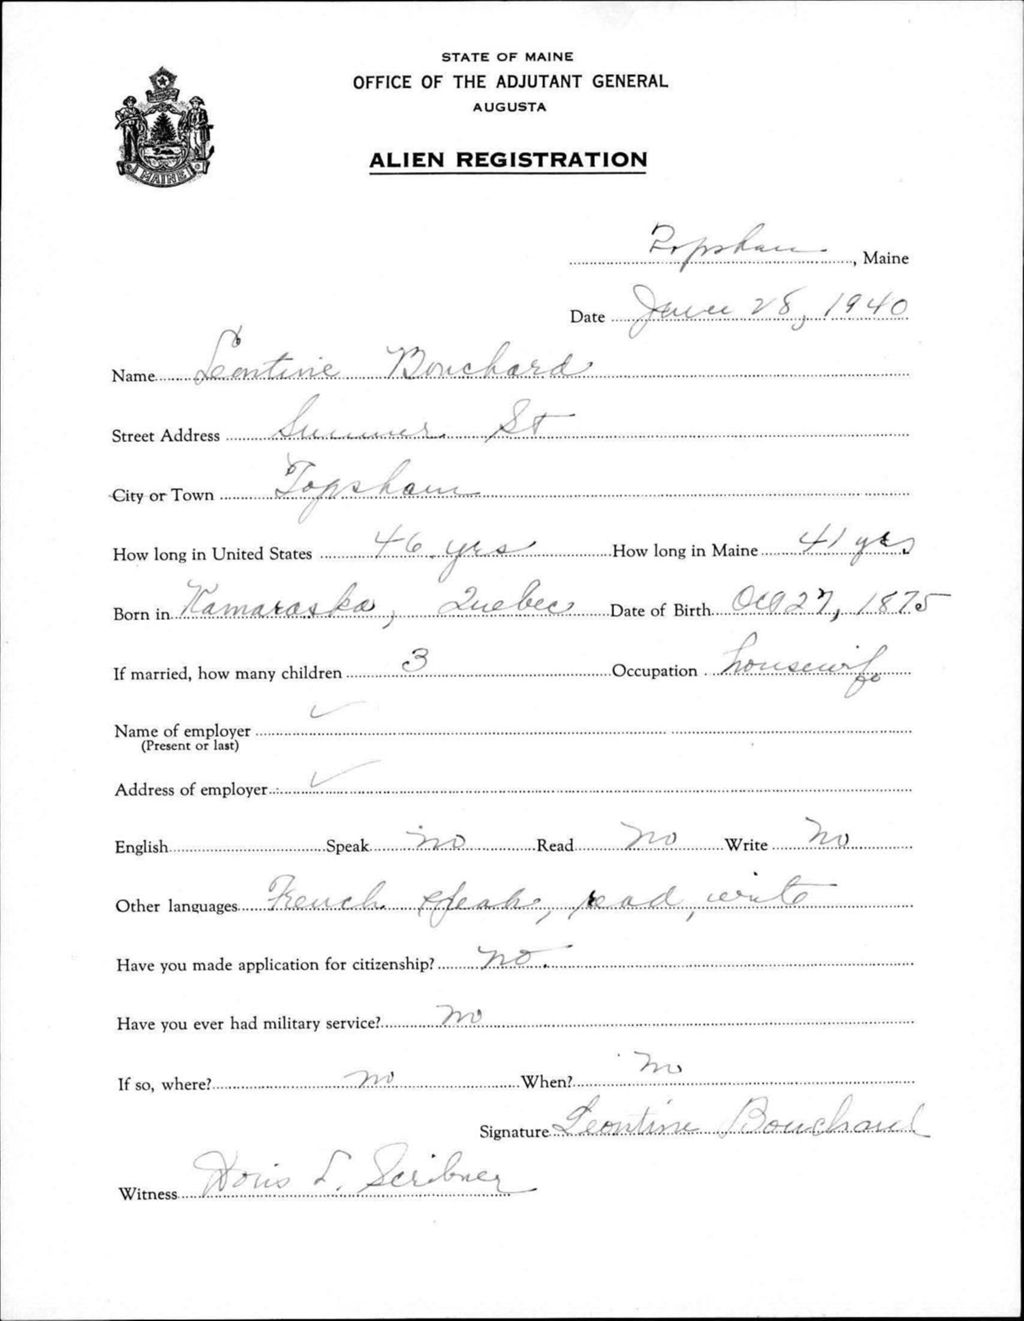 STATE OF MAINE
OFFICE OF THE ADJUTANT GENERAL
AUGUSTA
MAINE
ALIEN REGISTRATION
Topsham, Maine
Date June 28, 1940
Name Leontine Bouchard
Street Address Summer St
City or Town Topsham
How long in United States 46 yrs How long in Maine 41 yrs
Born in Kamaraska, Quebec Date of Birth Oct 27, 1875
If married, how many children 3 Occupation housewife
Name of employer ✓
(Present or last)
Address of employer ✓
English Speak no Read No Write No
Other languages French speak, read, write
Have you made application for citizenship? no.
Have you ever had military service? no
If so, where? no When? no
Signature Leontine Bouchard
Witness Doris L. Scribner